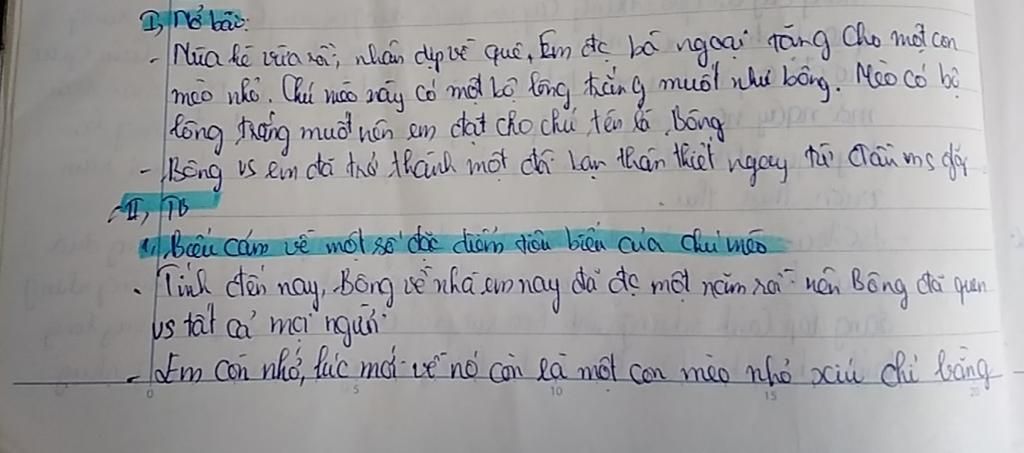 I, Mở bài:
- Mùa hè vừa rồi, nhân dịp về quê, Em đc bà ngoại tặng cho một con
mèo nhỏ. Chú mèo này có một bộ lông trắng muốt như bông. Mèo có bộ
lông trắng muốt nên em đặt cho chú, tên là Bông
- Bông vs em đã trở thành một đôi bạn thân thiết ngay từ đầu ms
- II, TB
1, Biểu cảm về một số đặc điểm tiêu biểu của chú mèo
- Tính đến nay, Bông về nhà em nay đã đc một năm rồi nên Bông đã quen
vs tất cả mọi người.
- Em còn nhớ, lúc mới về nó còn là một con mèo nhỏ xíu chỉ bằng
0 5 10 15 20